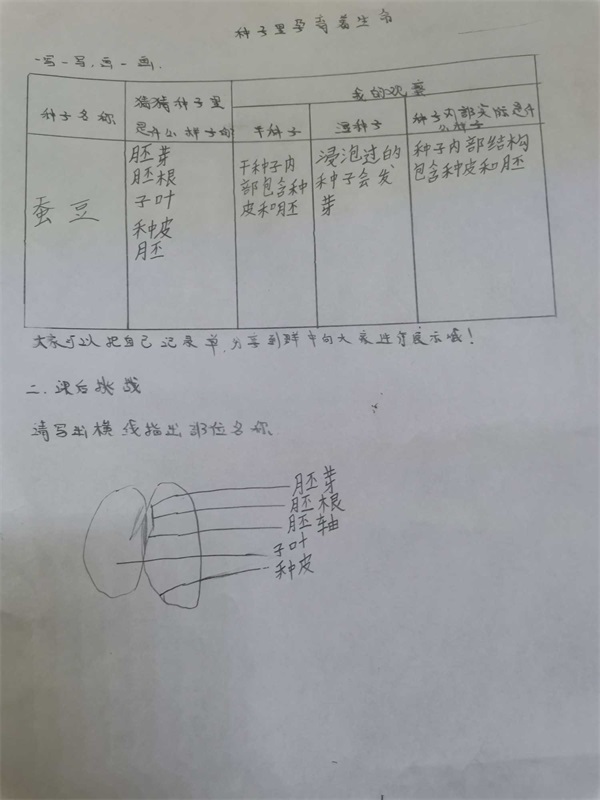 种子里孕育着生命
一写一写,画一画.
我的观察
种子名称
猜猜种子里
是什么样子的
干种子
湿种子
种子内部实际是什
么样子
蚕豆
胚芽
胚根
子叶
种皮
胚
干种子内
部包含种
皮和胚
浸泡过的
种子会发
芽
种子内部结构
包含种皮和胚
大家可以把自己记录单,分享到群中向大家进行展示哦!
二.课后挑战
请写出横线指出部位名称.
胚芽
胚根
胚轴
子叶
种皮